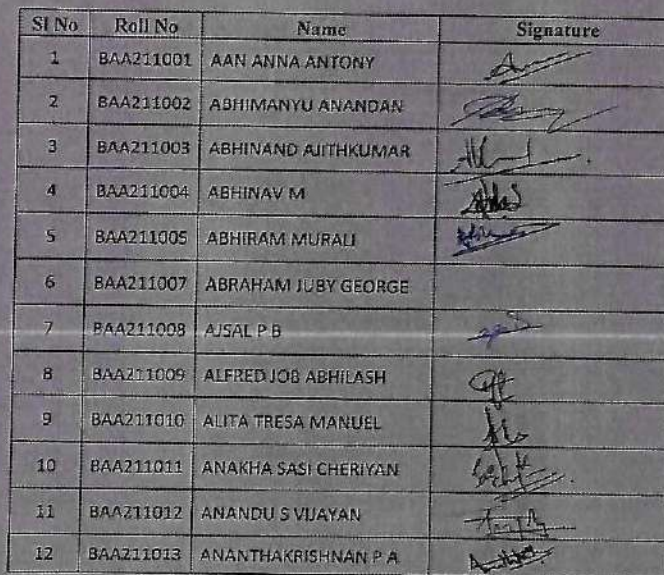 Sl No Roll No Name Signature
1 BAA211001 AAN ANNA ANTONY
2 BAA211002 ABHIMANYU ANANDAN
3 BAA211003 ABHINAND AJITHKUMAR
4 BAA211004 ABHINAV M
5 BAA211005 ABHIRAM MURALI
6 BAA211007 ABRAHAM JUBY GEORGE
7 BAA211008 AJSAL P B
8 BAA211009 ALFRED JOB ABHILASH
9 BAA211010 ALITA TRESA MANUEL
10 BAA211011 ANAKHA SASI CHERIYAN
11 BAA211012 ANANDU S VIJAYAN
12 BAA211013 ANANTHAKRISHNAN P A